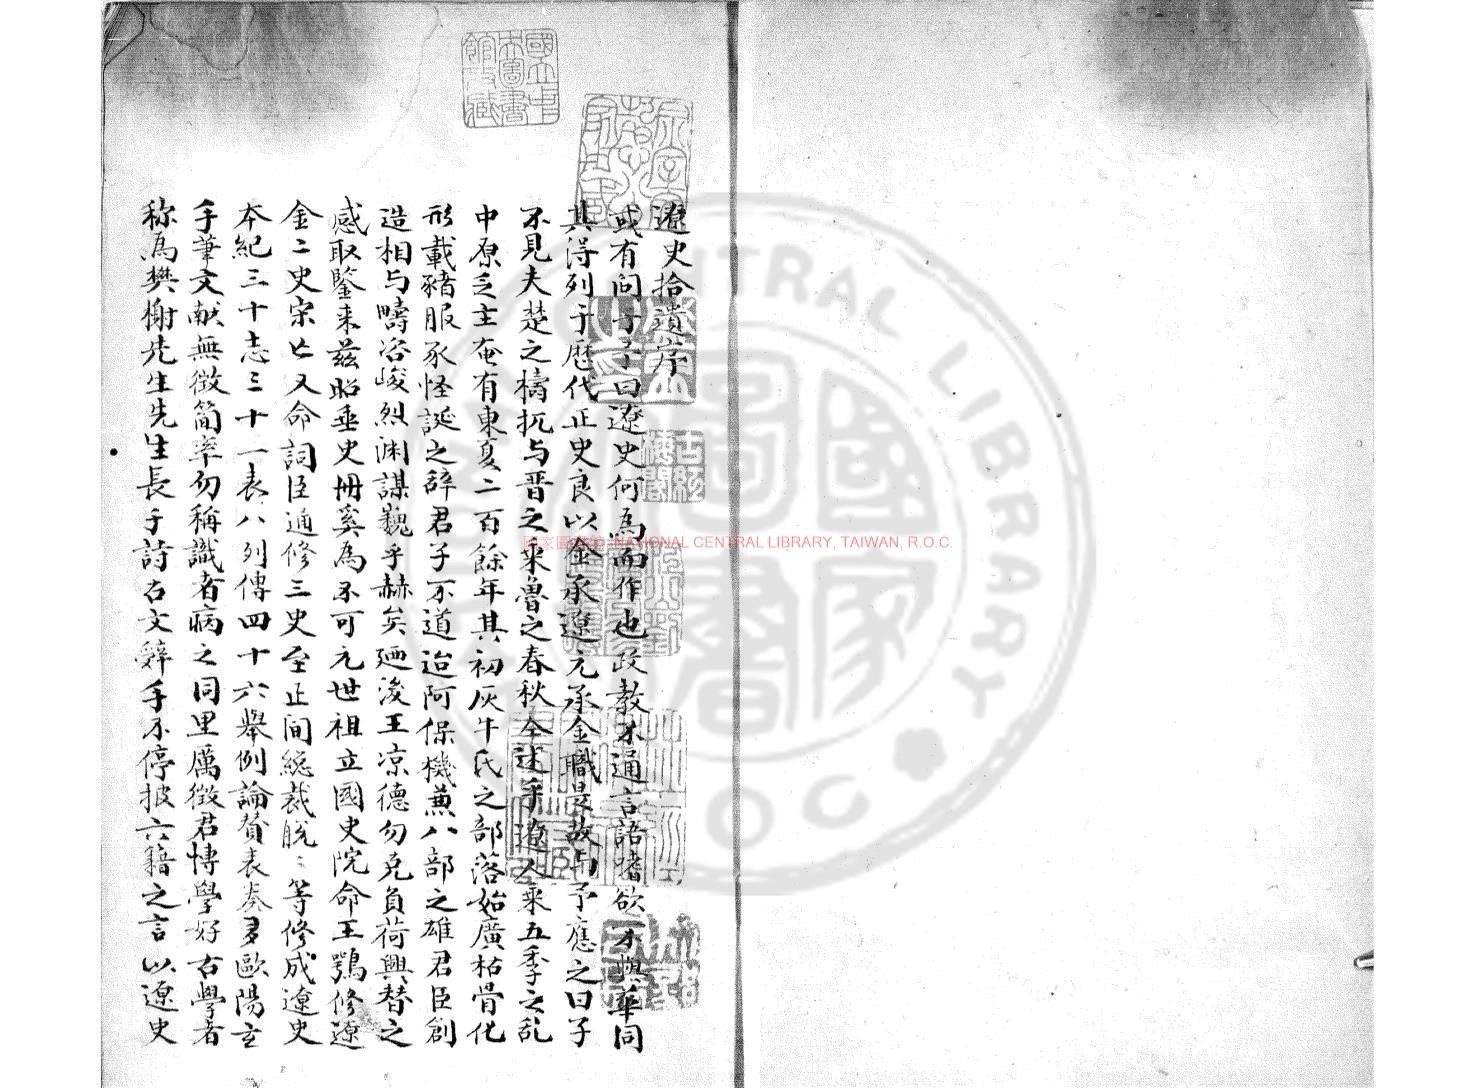 遼史拾遺序
或有問于予曰遼史何為而作也政教不通言語嗜欲不與華同
其淂列于歷代正史良以金承遼元承金職是故与予應之曰子
不見夫楚之檮杌与晋之乘魯之春秋全述乎遼人乘五季之乱
中原乏主奄有東夏二百餘年其初灰牛氏之部落始廣枯骨化
形載豬服豕怪誕之辞君子不道迨阿保機兼八部之雄君臣創
造相与疇咨峻烈渊謀巍乎赫矣廼後王凉德勿克負荷興替之
感取鑒来茲昭垂史冊奚為不可元世祖立國史院命王鶚修遼
金二史宋亡又命詞臣通修三史至正间総裁脫〻等修成遼史
本紀三十志三十一表八列傳四十六舉例論贊表奏多歐陽玄
手筆文献無徵简率勿稱識者病之同里厲徵君愽學好古學者
称為樊榭先生先生長于詩古文辤手不停披六籍之言以遼史
國立中央圖書館收藏
國家圖書館 NATIONAL CENTRAL LIBRARY, TAIWAN, R.O.C.
NATIONAL CENTRAL LIBRARY R.O.C
國家圖書